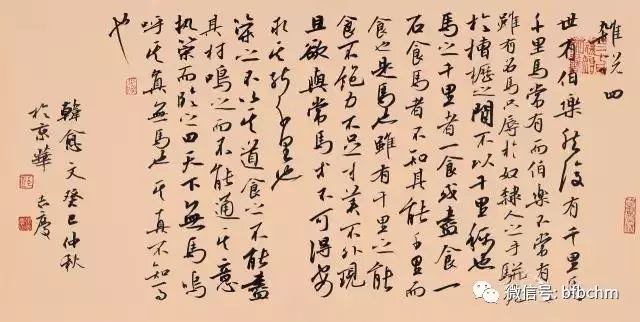 雜说四
世有伯樂然後有千里馬
千里馬常有而伯樂不常有故
雖有名馬只辱於奴隸人之手駢死
於槽櫪之間不以千里稱也
馬之千里者一食或盡食一
石食馬者不知其能千里而
食也是馬也雖有千里之能
食不飽力不足才美不外現
且欲與常馬等不可得安
求其能千里也
策之不以其道食之不能盡
其材鳴之而不能通其意
执策而臨之曰天下無馬嗚
呼其真無馬也其真不知馬
也
韓愈文癸巳仲秋
於京華
微信号: bfbchm